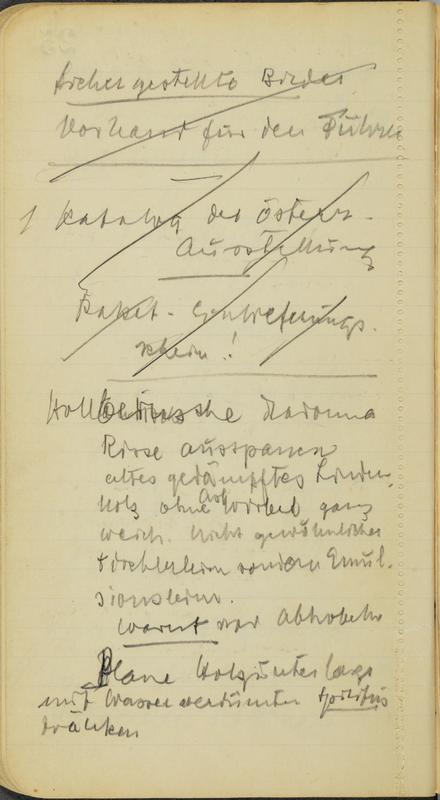 sichergestellte Bilder
Vorhand für den Führer
1 Katalog der österr.
Ausstellung
Paket-Einlieferungs-
schein!
Holbeinsche Madonna
Risse ausspanen
altes gedämpftes Linden-
holz ohne Ast Wirbel ganz
weich. Nicht gewöhnlicher
Tischlerleim sondern Emul-
sionsleim.
warnt vor Abhobeln
Plane Holzunterlage
mit Wasser verdünnten Spiritus
tränken